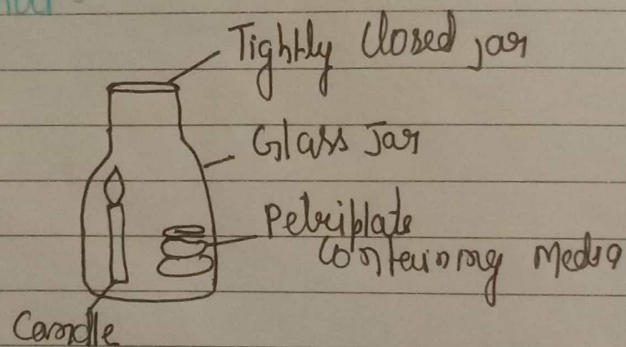 Tightly closed jar
Glass Jar
Petriplate
Containing media
Candle